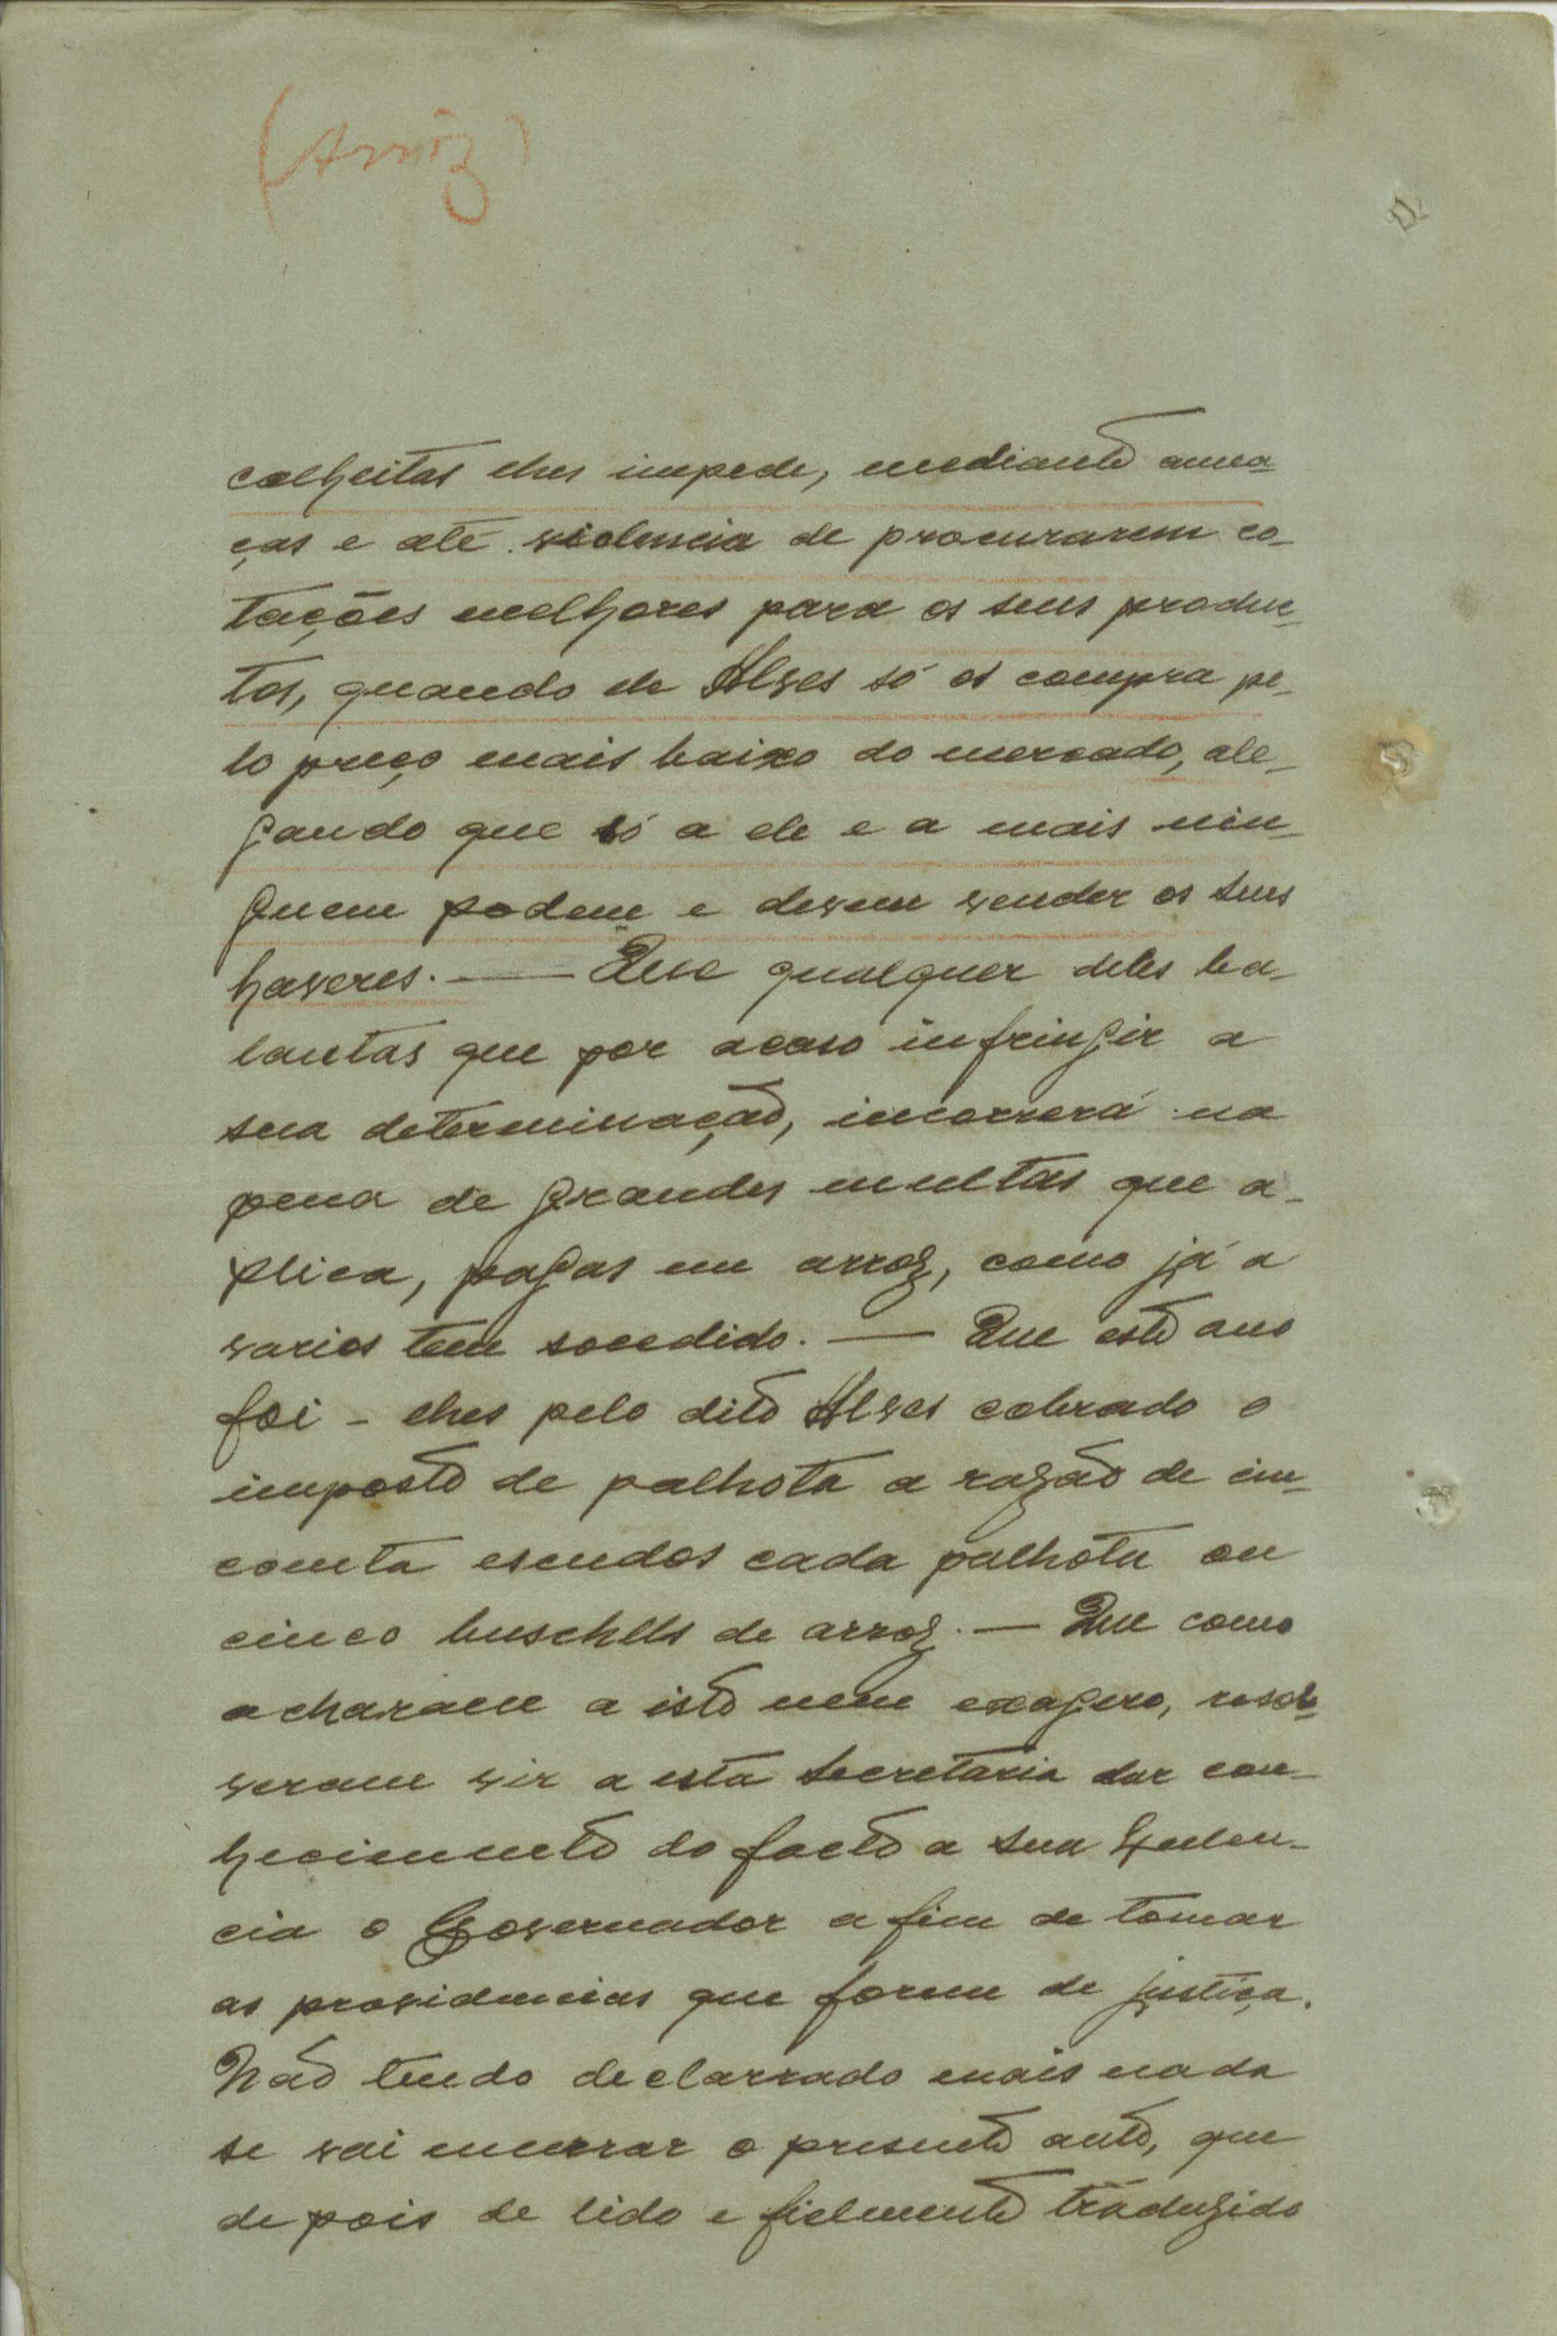 (Arrôz)
colheitas lhes impede, mediante amea-
ças e até violencia de procurarem co-
tações melhores para os seus produc-
tos, quando ele Alves só os compra pe-
lo preço mais baixo do mercado, ale-
gando que só a ele e a mais nin-
guem podem e devem vender os seus
haveres. — Que qualquer deles ba-
lantas que por acaso infringir a
sua determinação, incorrerá na
pena de grandes multas que a-
plica, pagas em arroz, como já a
varios tem socedido. — Que este ano
foi-lhes pelo dito Alves cobrado o
imposto de palhota a razão de cin-
coenta escudos cada palhota ou
cinco buschells de arroz. — Que como
acharam a isto um exagero, resol-
veram vir a esta Secretaria dar con-
hecimento do facto a Sua Excelen-
cia o Governador a fim de tomar
as providencias que forem de justiça.
Não tendo declarrado mais nada
se vai encerrar o presente auto, que
depois de lido e fielmente traduzido